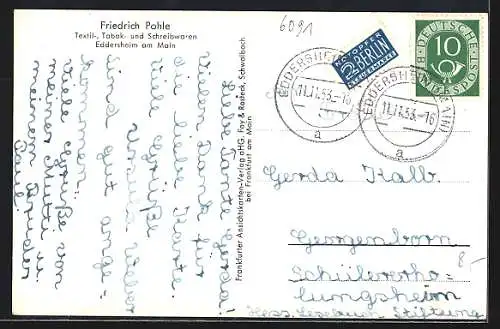 Friedrich Pohle
Textil-, Tabak- und Schreibwaren
Eddersheim am Main
6091
Liebe Tante Gerda!
Vielen Dank für
die liebe Karte.
Viele Grüße
Ursula. Wieber
sind gut ange-
kommen.
Viele Grüße von
meiner Mutti u.
meinem Bruder
Paul
Frankfurter Ansichtskarten-Verlag oHG Fay & Radeck, Schwalbach
bei Frankfurt am Main
NOTOPFER
2 BERLIN
STEUERMARKE
DEUTSCHE
BUNDESPOST
10
EDDERSHEIM (MAIN)
11.11.53.-16
a
EDDERSHEIM (MAIN)
11.11.53.-16
a
Gerda Kalb.
Georgenborn
Schülererho-
lungsheim
Hess. Lesebuch-Stiftung
8-